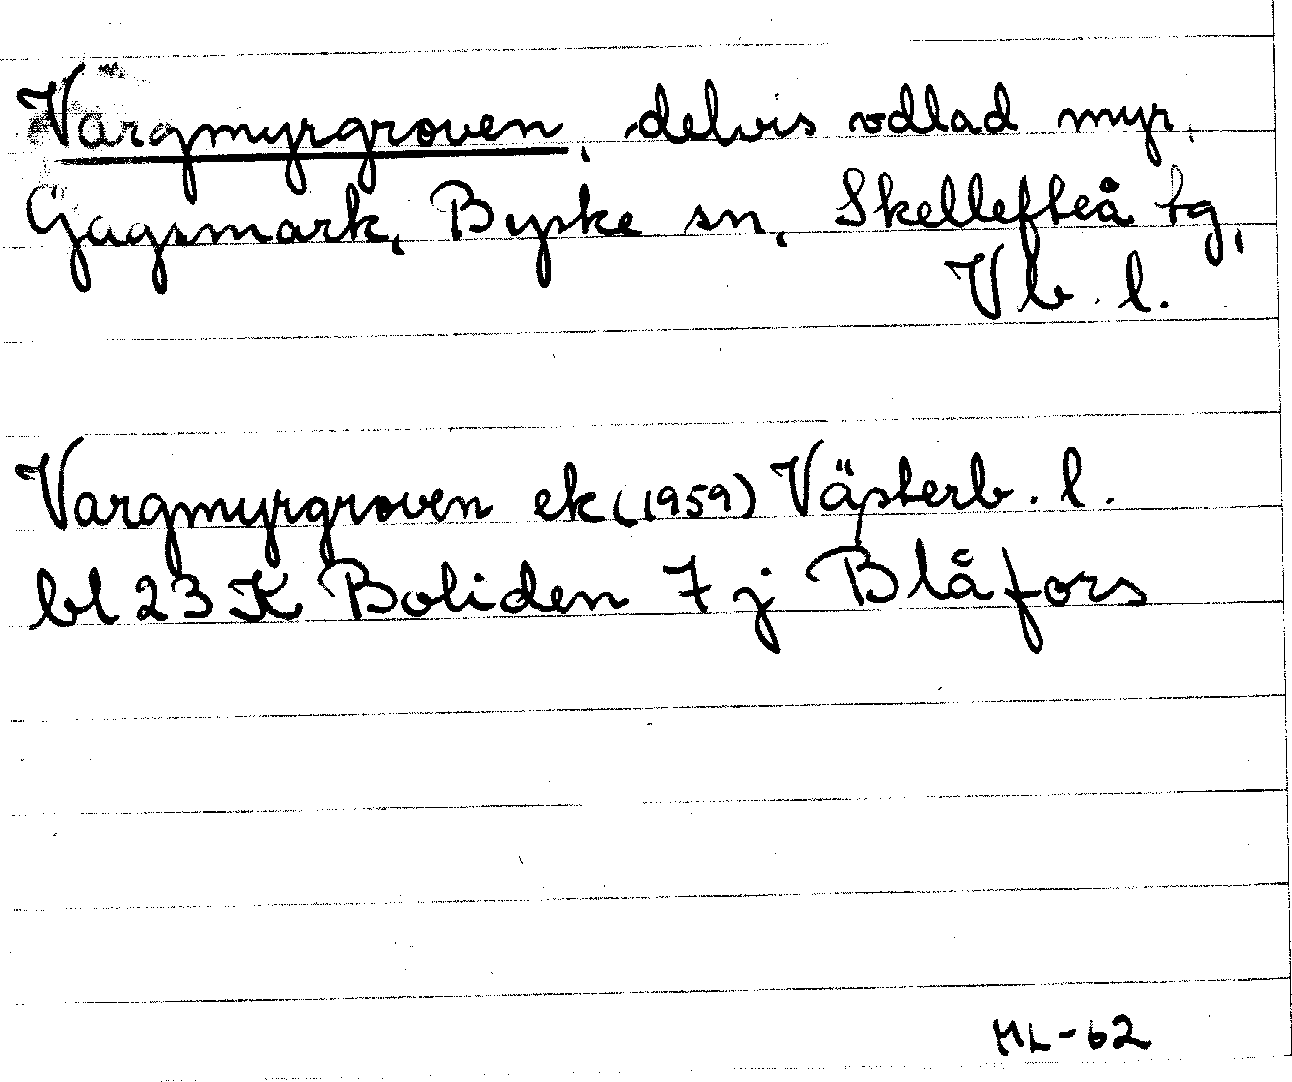 Vargmyrgroven, delvis odlad myr,
Gagsmark, Byske sn, Skellefteå tg,
Vb. l.
Vargmyrgroven ek (1959) Västerb. l.
bl 23 K Boliden 7 j Blåfors
ML-62